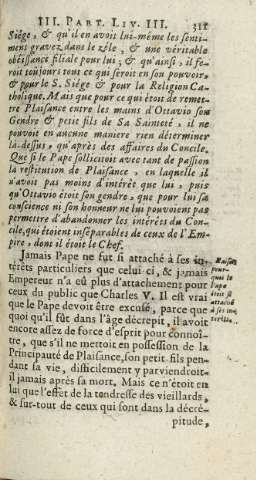 III. PART. LIV. III. 311
Siége, & qu'il en avoit lui-même les senti-
mens gravez dans le zéle, & une véritable
obéissance filiale pour lui; & qu'ainsi, il fe-
roit toûjours tout ce qui seroit en son pouvoir,
& pour le S. Siége & pour la Religion Ca-
tholique. Mais que pour ce qui étoit de remet-
tre Plaisance entre les mains d'Ottavio son
Gendre & petit fils de Sa Sainteté, il ne
pouvoit en aucune maniere rien déterminer
là-dessus, qu'après des affaires du Concile.
Que si le Pape sollicitoit avec tant de passion
la restitution de Plaisance, en laquelle il
n'avoit pas moins d'intérêt que lui, puis
qu'Ottavio étoit son gendre, que pour lui sa
conscience ni son honneur ne lui pouvoient pas
permettre d'abandonner les intérêts du Con-
cile, qui étoient inséparables de ceux de l'Em-
pire, dont il étoit le Chef.
Jamais Pape ne fut si attaché à ses in-
térêts particuliers que celui ci, & jamais
Empereur n'a eû plus d'attachement pour
ceux du public que Charles V. Il est vrai
que le Pape devoit être excusé, parce que
quoi qu'il fût dans l'âge décrepit, il avoit
encore assez de force d'esprit pour connoî-
tre, que s'il ne mettoit en possession de la
Principauté de Plaisance, son petit fils pen-
dant sa vie, difficilement y parviendroit-
il jamais après sa mort. Mais ce n'étoit en
lui que l'effet de la tendresse des vieillards,
& sur-tout de ceux qui sont dans la décré-
pitude,
Raison
pour-
quoi le
Pape
étoit si
attaché
à ses in-